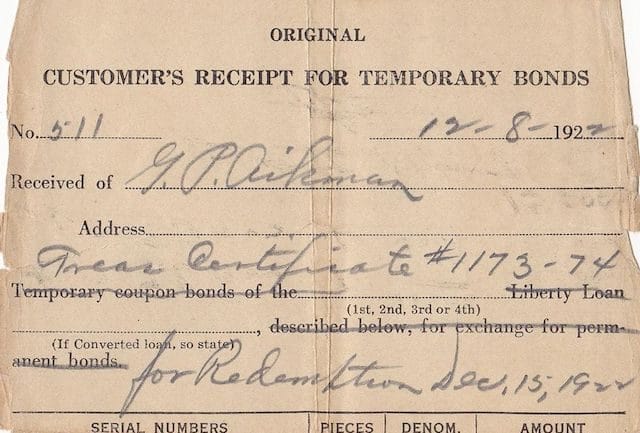 ORIGINAL
CUSTOMER'S RECEIPT FOR TEMPORARY BONDS
No. 511 12-8-1922
Received of G. P. Aikman
Address
Treas Certificate #1173-74
Temporary coupon bonds of the Liberty Loan
(1st, 2nd, 3rd or 4th)
, described below, for exchange for perm-
(If Converted loan, so state)
anent bonds. for Redemption Dec, 15, 1922
SERIAL NUMBERS PIECES DENOM. AMOUNT